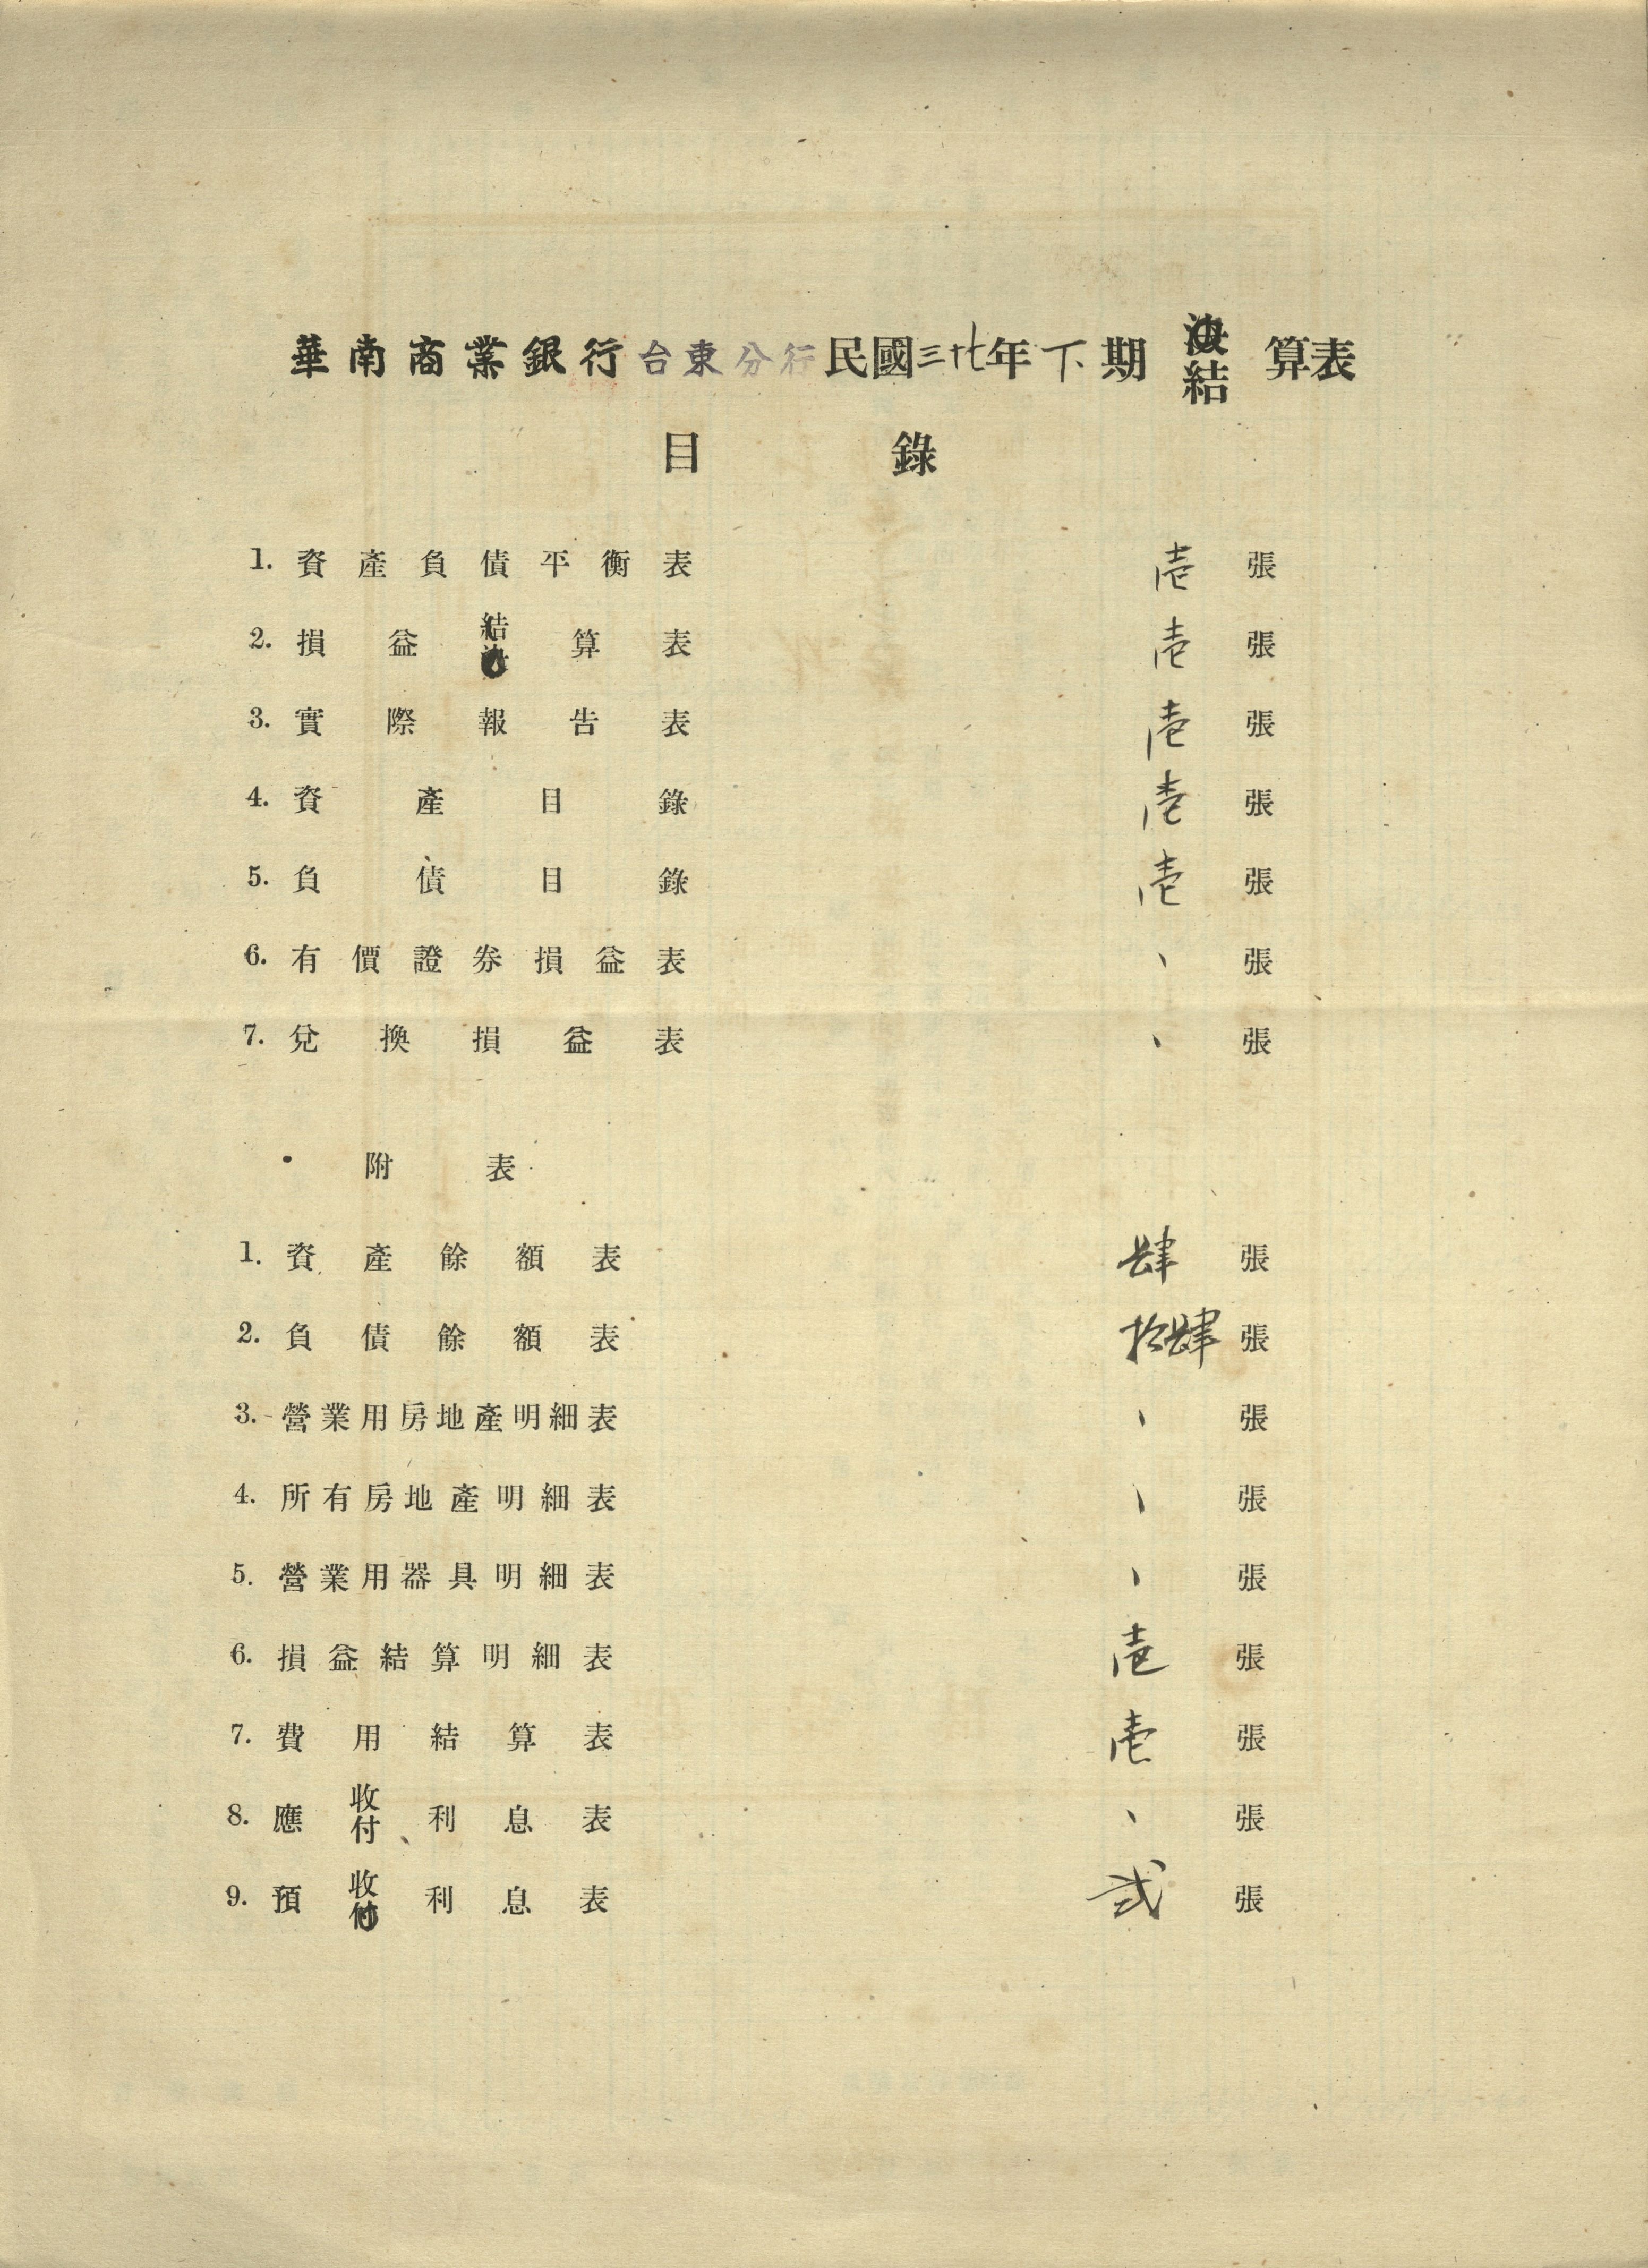 華南商業銀行台東分行民國三十七年下期決結算表
目錄
1. 資產負債平衡表 壱張
2. 損益結決算表 壱張
3. 實際報告表 壱張
4. 資產目錄 壱張
5. 負債目錄 壱張
6. 有價證券損益表 、張
7. 兌換損益表 、張
附表
1. 資產餘額表 肆張
2. 負債餘額表 拾肆張
3. 營業用房地產明細表 、張
4. 所有房地產明細表 、張
5. 營業用器具明細表 、張
6. 損益結算明細表 壱張
7. 費用結算表 壱張
8. 應收付利息表 、張
9. 預收付利息表 弍張